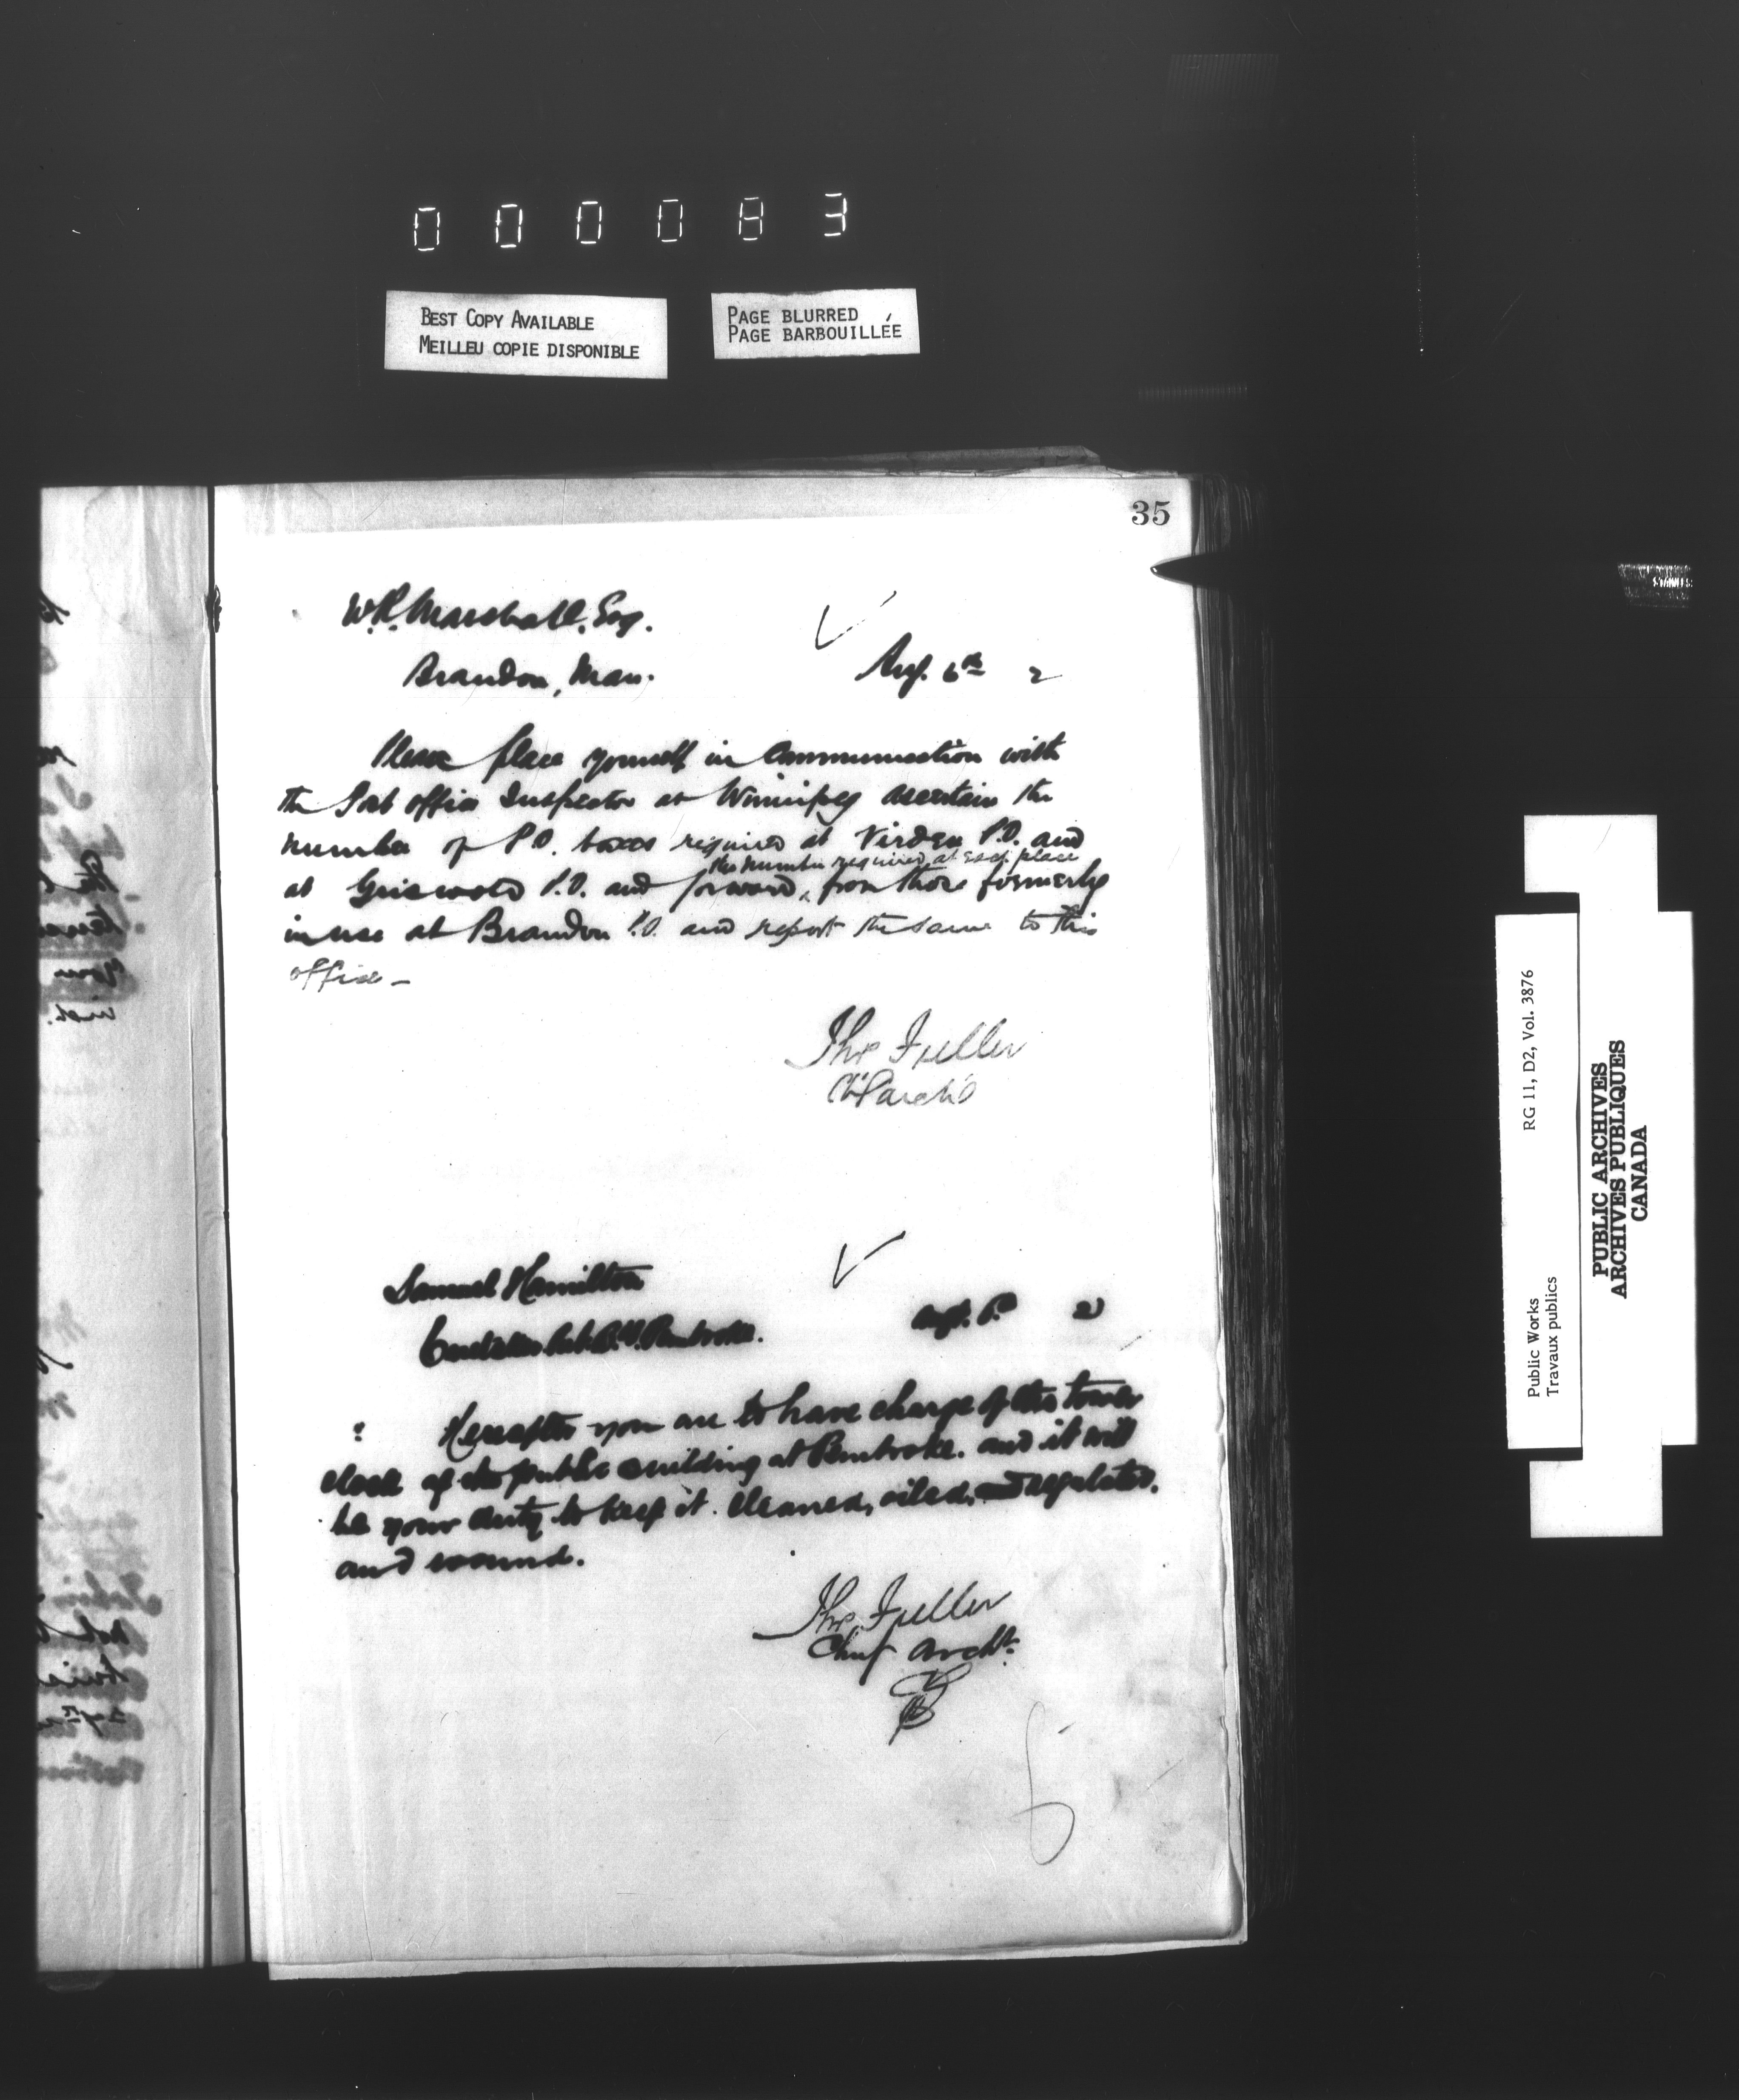 000083
BEST COPY AVAILABLE
MEILLEU COPIE DISPONIBLE
PAGE BLURRED
PAGE BARBOUILLÉE
35
W.R. Marshall, Esq.
Brandon, Man.
Aug. 6th 2
Please place yourself in Communication with
the Post Office Inspector at Winnipeg ascertain the
number of P.O. boxes required at Virden P.O. and
the number required at each place
at Griswold P.O. and forward ‸ from those formerly
in use at Brandon P.O. and report the same to this
office -
Thos Fuller
Samuel Hamilton
Caretaker Pub. B. Pembroke.
Augt. 6. 2
Hereafter you are to have charge of the tower
clock of the public building at Pembroke. and it will
be your duty to keep it. cleaned, oiled, and regulated,
and wound.
Thos Fuller
Chief Archt.
RG 11, D2, Vol. 3876
Public Works
Travaux publics
PUBLIC ARCHIVES
ARCHIVES PUBLIQUES
CANADA